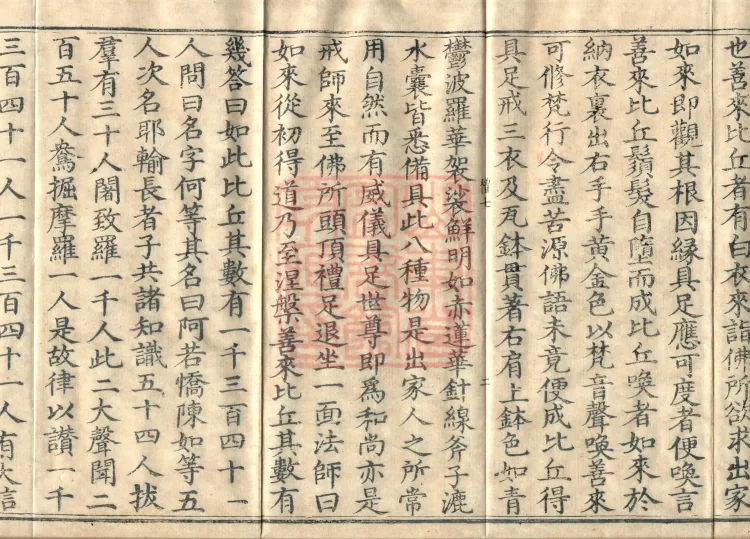 也善來比丘者有白衣來詣佛所欲求出家
如來即觀其根因緣具足應可度者便喚言
善來比丘鬚髮自墮而成比丘喚者如來於
納衣裏出右手手黃金色以梵音聲喚善來
可修梵行令盡苦源佛語未竟便成比丘得
具足戒三衣及瓦鉢貫著右肩上鉢色如青
鬱波羅華袈裟鮮明如赤蓮華針線斧子漉
水囊皆悉備具此八種物是出家人之所常
用自然而有威儀具足世尊即為和尚亦是
戒師來至佛所頭頂禮足退坐一面法師曰
如來從初得道乃至涅槃善來比丘其數有
幾答曰如此比丘其數有一千三百四十一
人問曰名字何等其名曰阿若憍陳如等五
人次名耶輸長者子共諸知識五十四人拔
羣有三十人闍致羅一千人此二大聲聞二
百五十人鴦掘摩羅一人是故律以讚一千
三百四十一人一千三百四十一人有大信